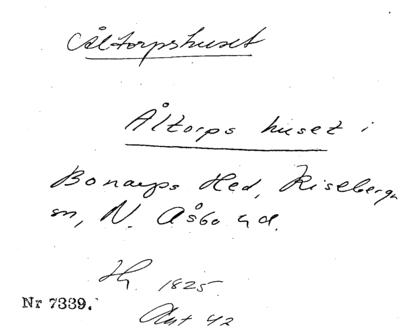 Åltorpshuset
Åltorps huset i
Bonarps Hed, Riseberga
sn, N. Åsbo hd.
Hf. 1825.
Nr 7339.
Aut 42